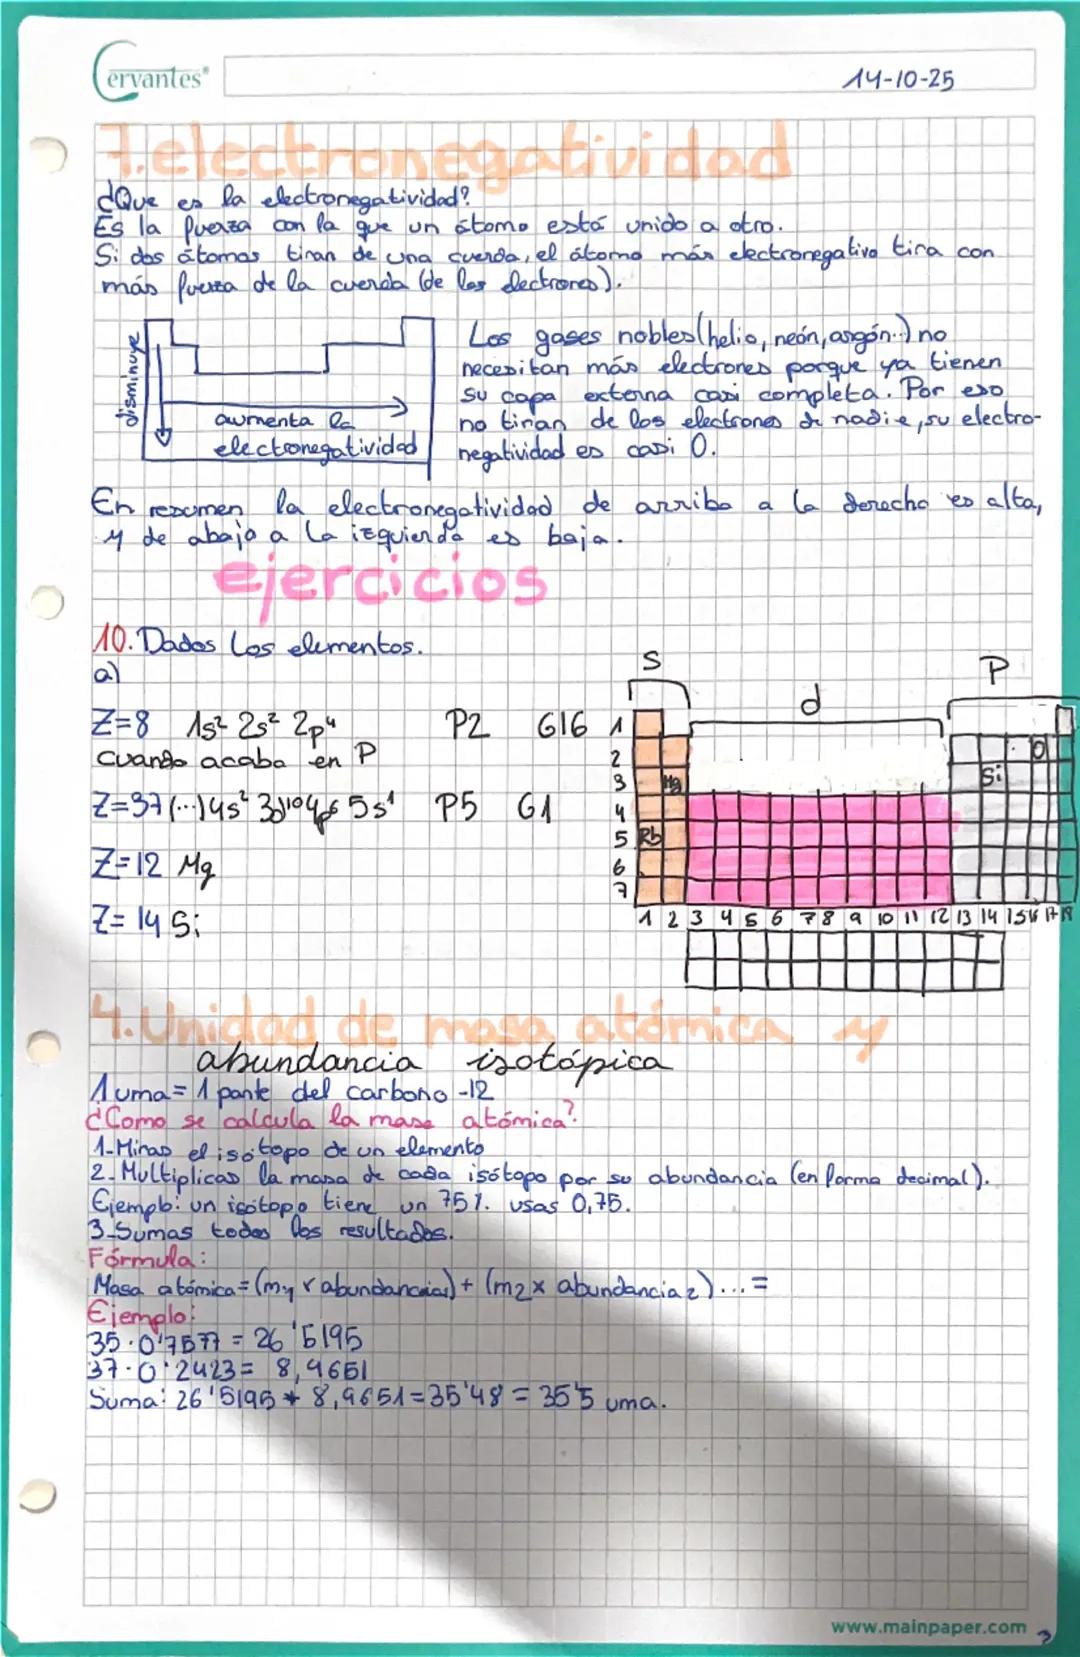 Cervantes
14-10-25
7.electronegatividad
¿Que es la electronegatividad?
Es la fuerza con la que un átomo está unido a otro.
Si dos átomos tiran de una cuerda, el átomo más electronegativo tira con
más fuerza de la cuerda (de los electrones).
disminuye
aumenta la
electronegatividad
Los gases nobles (helio, neón, argón..) no
necesitan más electrones porque ya tienen
su capa externa casi completa. Por eso
no tiran de los electrones de nadie, su electro-
negatividad es casi 0.
En resumen la electronegatividad de arriba a la derecha es alta,
y de abajo a la izquierda es baja.
ejercicios
10. Dados los elementos.
a)
Z=8 1s² 2s² 2p⁴ P2 G16
cuando acaba en P
Z=37 (...) 4s² 3d¹⁰ 4p⁶ 5s¹ P5 G1
Z=12 Mg
Z=14 Si
S
d
P
1
2 O
3 Mg Si
4
5 Rb
6
7
1 2 3 4 5 6 7 8 9 10 11 12 13 14 15 16 17 18
4.Unidad de masa atómica y
abundancia isotópica
1uma= 1 parte del carbono -12
¿Como se calcula la masa atómica?
1-Miras el isótopo de un elemento
2-Multiplicas la masa de cada isótopo por su abundancia (en forma decimal).
Ejemplo: un isótopo tiene un 75%. usas 0,75.
3-Sumas todos los resultados.
Fórmula:
Masa atómica= (m₁ x abundancia₁) + (m₂ x abundancia₂)...=
Ejemplo:
35·0'7577 = 26'5195
37·0'2423= 8,9651
Suma: 26'5195 + 8,9651=35'48 = 35'5 uma.
www.mainpaper.com